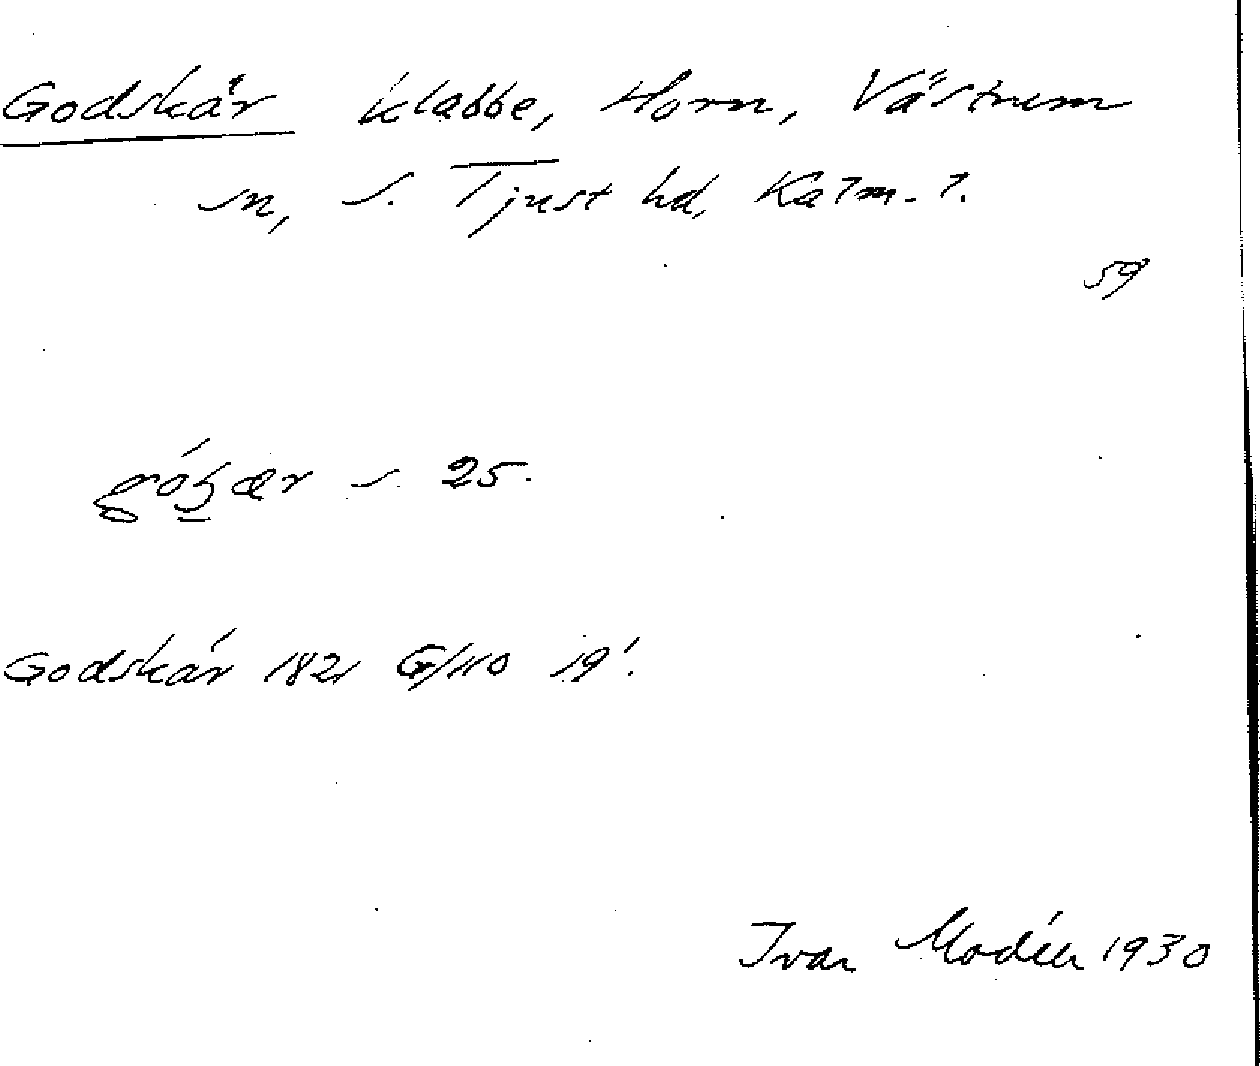 Godskär klabbe, Horn, Västrum
sn, S. Tjust hd, Kalm. l.
59
s. 25.
Godskär 1821 G/110 19'.
Ivar Modéer 1930